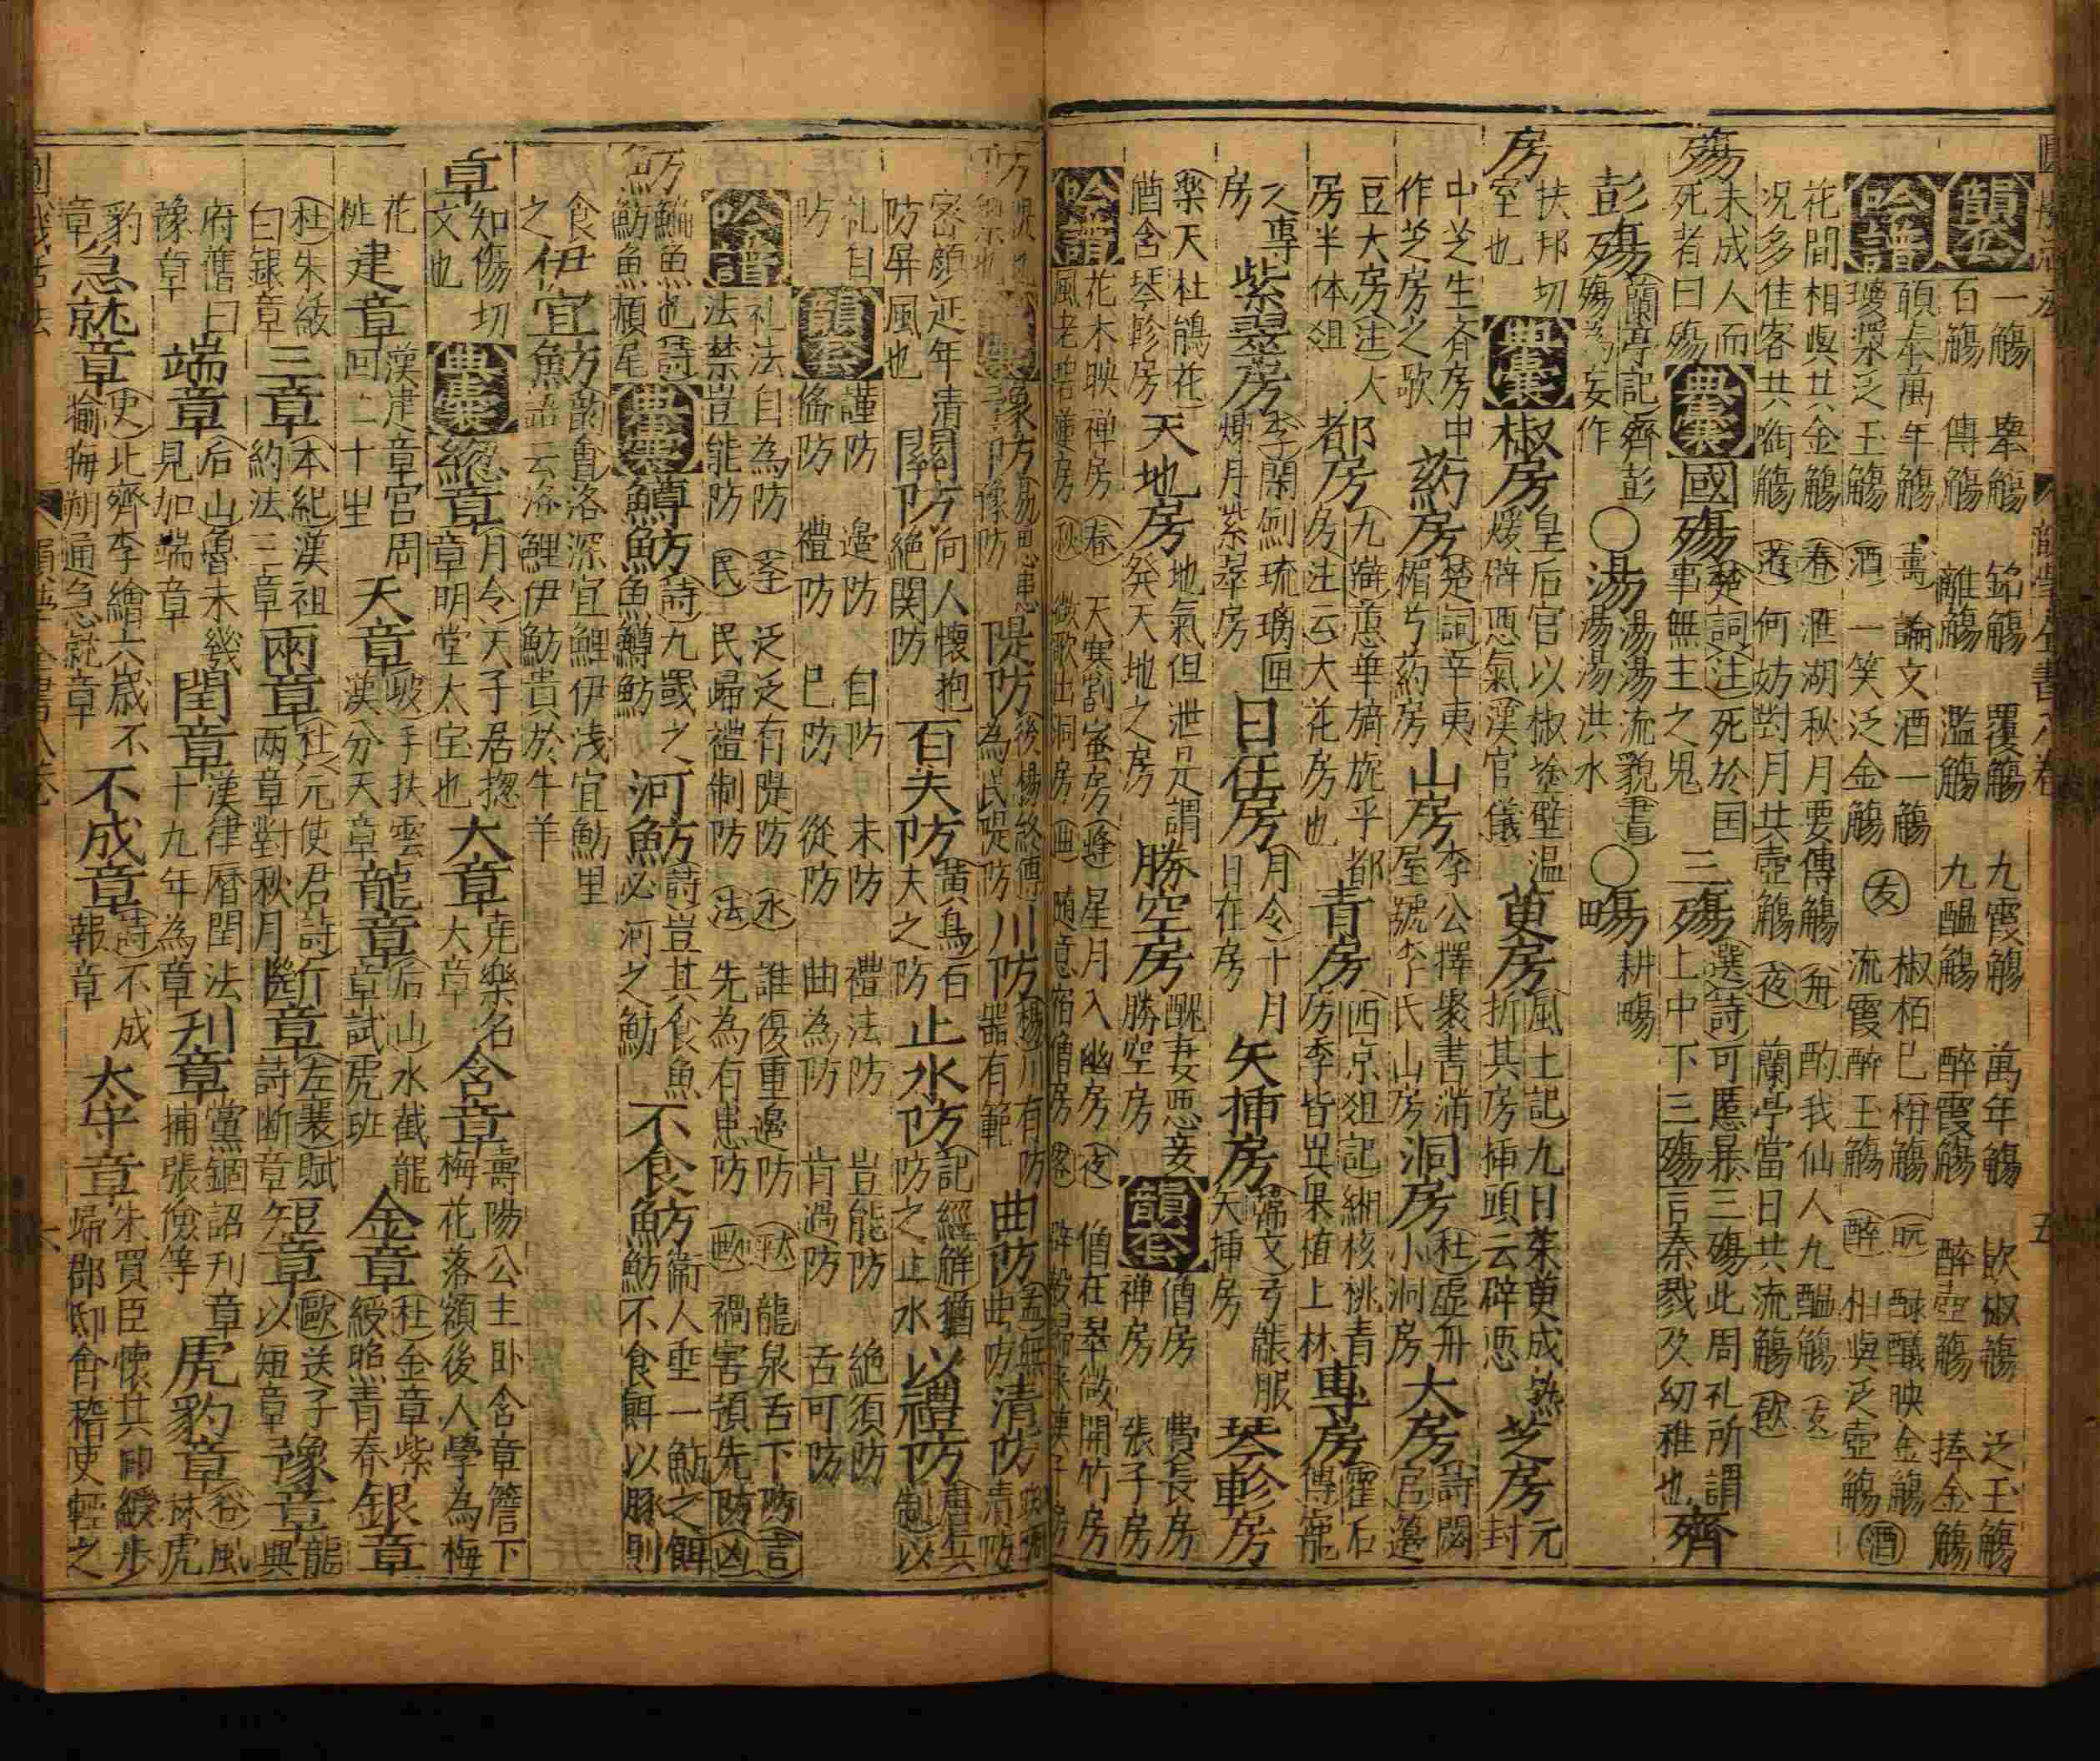 一觴 舉觴 銘觴 覆觴 九霞觴 萬年觴 飲椒觴 泛玉觴
百觴 傳觴 離觴 濫觴 九醞觴 醉霞觴 醉壺觴 捧金觴
吟譜
奉萬年觴 壽 論文酒一觴 友 椒栢已稱觴 玩 醁醆映金觴 酒
瓊漿泛玉觴 酒 一笑泛金觴 流霞醉玉觴 醉 相與泛壺觴
花間相與共金觴 春 滙湖秋月要傳觴 舟 酌我仙人九醞觴 友
况多佳客共銜觴 遊 何妨對月共壺觴 夜 蘭亭當日共流觴 飲
殤
未成人而
死者曰殤
典囊
國殤
楚詞注死於国
事無主之鬼
三殤
選詩可慝暴三殤此周礼所謂
上中下三殤言秦戮及幼稚也
齊
彭殤
蘭亭記齊彭
殤為妄作
○湯
湯湯流貌書
湯湯洪水
○畼
耕畼
房
扶邦切
室也
典囊
椒房
皇后官以椒塗壁温
煖辟惡氣漢官儀
茰房
風土記九日茱茰成熟
折其房揷頭云辟惡
芝房
元
封
中芝生斉房中
作芝房之歌
葯房
楚詞辛夷
楣兮葯房
山房
李公擇聚書滿
屋號李氏山房
洞房
杜虛舟
小洞房
大房
詩閟
宮籩
豆大房注大
房半体俎
都房
九辯蕙華旖旎乎都
房注云大花房也
青房
西京俎記緗核桃青
房季皆異果植上林
專房
霍石
傳寵
之專
房
紫翠房
李閑劍琉璃匣
煉月紫翠房
日在房
月令十月
日在房
矢揷房
韓文弓韔服
矢揷房
琴軫房
樂天杜鵑花
酋含琴軫房
天地房
地氣但泄是謂
癸天地之房
勝空房
醜妻惡妾
勝空房
僧房 費長房
禅房 張子房
吟譜
花木映禅房 春 天寒割蜜房 蜂 星月入幽房 夜 僧在翠微開竹房
風老碧蓮房 秋 微歌出洞房 随意宿僧房
防
豫防
易思患
豫防
隄防
後楊終傳
為民隄防
川防
楊川有防
器有範
曲防
孟無
曲防
清防
清防
密顔延年清
防屏風也
關防
向人懷抱
絶関防
百夫防
黃鳥百
夫之防
止水防
記經解猶
防之止水
以禮防
唐兵
制以
礼自
防
謹防 邊防 自防 未防 禮法防 豈能防 絶須防
俻防 禮防 已防 從防 曲為防 肯過防 舌可防
吟譜
礼法自為防 泛泛有隄防 水 誰復重邊防 龍泉舌下防 言
法禁豈能防 民 民歸禮制防 法 先為有患防 禍害須先防 凶
魴
鯿魚也詩
魴魚頳尾
典囊
鱒魴
詩九罭之
魚鱒魴
河魴
詩豈其食魚
必河之魴
不食魴
衞人垂一魴之餌
魴不食餌以豚則
食
之
伊宜魴
洛深宜鯉伊浅宜魴里
魚語云洛鯉伊魴貴於牛羊
章
知傷切
文也
典囊
總章
月令天子居揔
章明堂太室也
大章
尭樂名
大章
含章
壽陽公主卧含章簷下
梅花落額後人學為梅
花
桩
建章
漢建章宮周
回二十里
天章
坡手扶雲
漢分天章
龍章
后山水截龍
章試虎班
金章
杜金章紫
綬照青春
銀章
杜朱紱
曰銀章
三章
本紀漢祖
約法三章
兩章
杜元使君詩
兩章對秋月
斷章
左襄賦
詩断章
短章
歐送子
以短章
豫章
龍
興
府舊曰
豫章
端章
后山魯未幾
見加端章
閏章
漢律暦閏法
十九年為章
刋章
黨錮詔刋章
捕張儉等
虎豹章
谷風
林虎
豹
章
急就章
史北齊李繪六歲不
踰晦朔通急就章
不成章
詩不成
報章
太守章
朱買臣懷共印綬步
帰郡邸會稽吏輕之